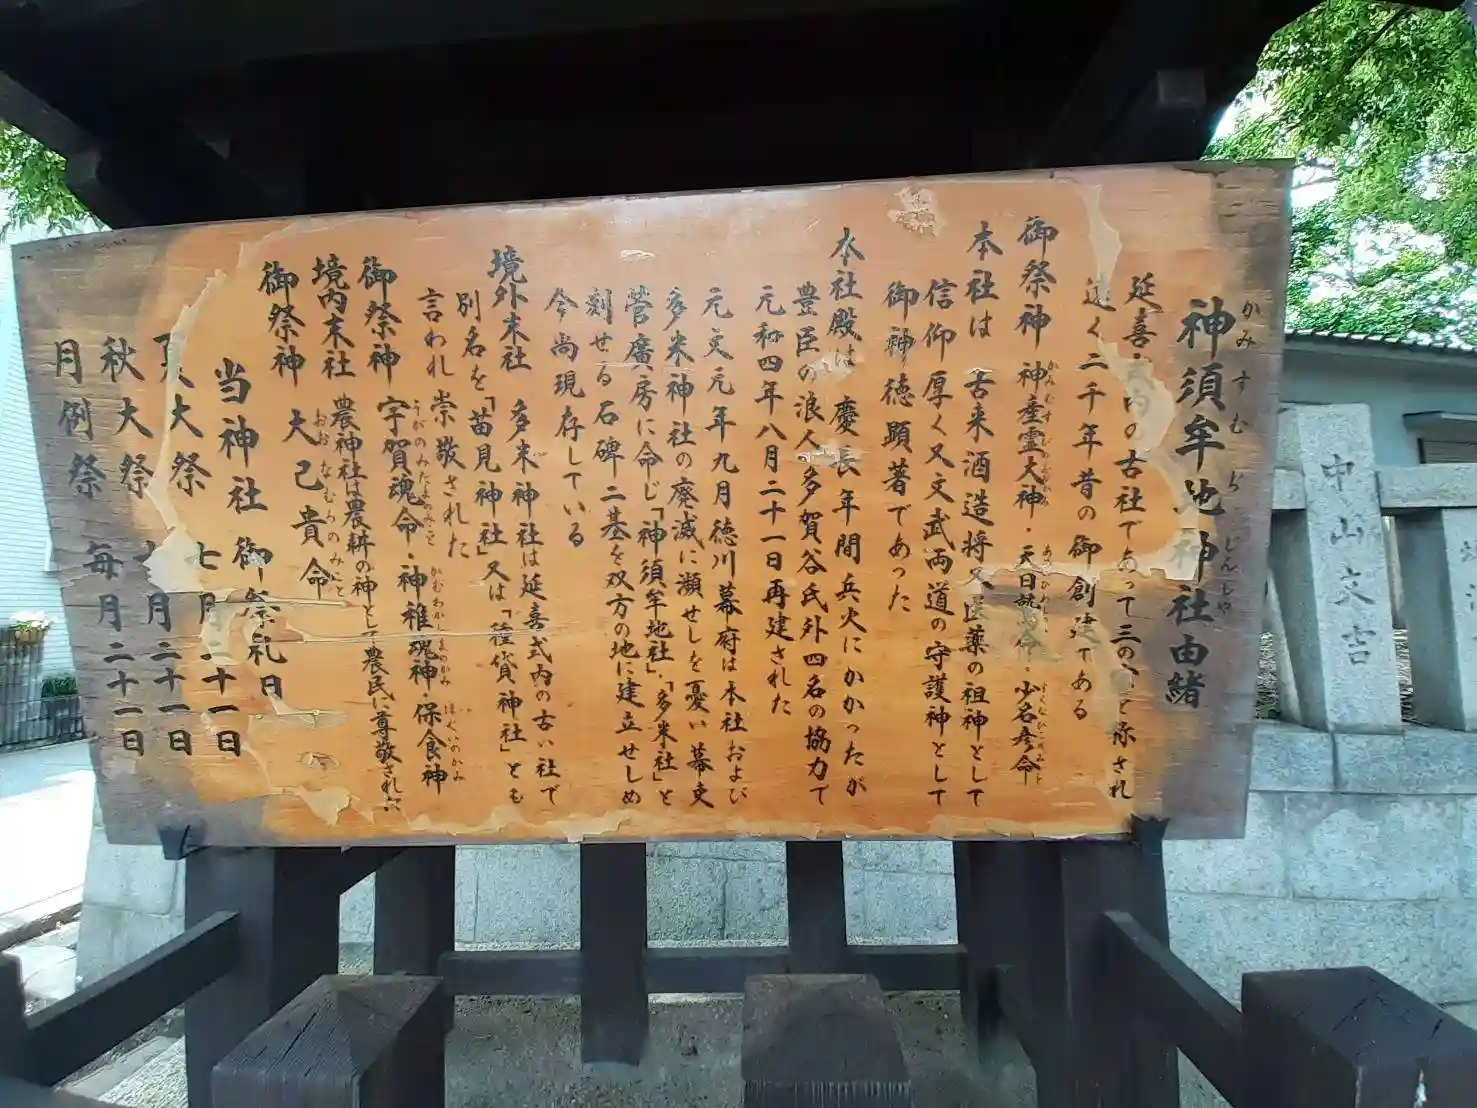 神須牟地神社由緒
かみすむぢじんじゃ
延喜式内の古社であって三の宮と称され
遠く二千年昔の御創建である
御祭神 神産霊大神・天日鷲命・少名彦命
本社は古来酒造将又医薬の祖神として
信仰厚く又文武両道の守護神として
御神徳顕著であった
本社殿は慶長年間兵火にかかったが
豊臣の浪人多賀谷氏外四名の協力で
元和四年八月二十一日再建された
元文元年九月徳川幕府は本社および
多米神社の廃滅に瀕せしを憂い幕吏
菅廣房に命じ「神須牟地社」・「多米社」と
刻せる石碑二基を双方の地に建立せしめ
今尚現存している
境外末社 多米神社は延喜式内の古い社で
別名を「苗見神社」又は「種貸神社」とも
言われ崇敬された
御祭神 宇賀魂命・神稚魂神 保食神
うがのみたまのみこと かむわかむすびのかみ ほくいのかみ
境内末社 農神社は農耕の神として農民に尊敬され
御祭神 大己貴命
おおなむちのみこと
当神社御祭礼日
夏大祭 七月二十一日
秋大祭 十月二十一日
月例祭 毎月二十一日
中山文吉